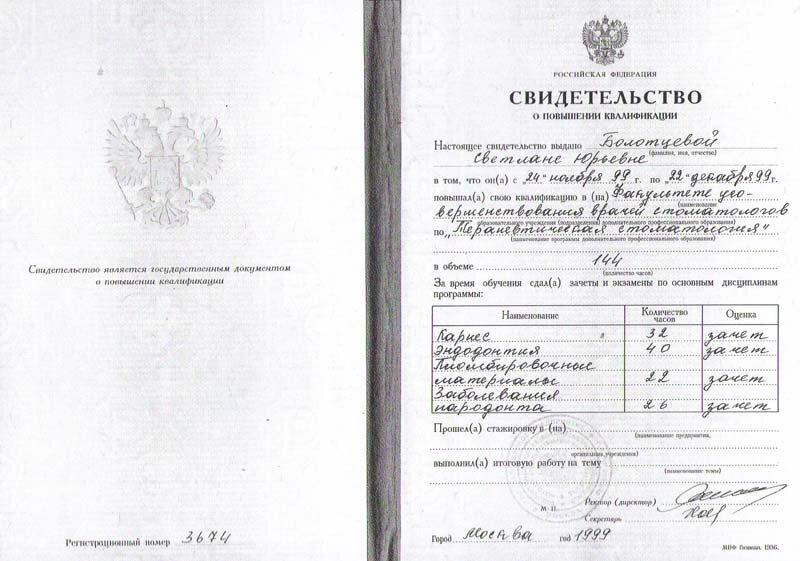 Свидетельство является государственным документом
о повышении квалификации
Регистрационный номер 3674
РОССИЙСКАЯ ФЕДЕРАЦИЯ
СВИДЕТЕЛЬСТВО
О ПОВЫШЕНИИ КВАЛИФИКАЦИИ
Настоящее свидетельство выдано Болотцевой
(фамилия, имя, отчество)
Светлане Юрьевне
в том, что он(а) с "24" ноября 99 г. по "22" декабря 99 г.
повышал(а) свою квалификацию в (на) Факультете усо-
(наименование
вершенствования врачей стоматологов
образовательного учреждения (подразделения) дополнительного профессионального образования)
по "Терапевтическая стоматология"
(наименование программы дополнительного профессионального образования)
в объеме 144
(количество часов)
За время обучения сдал(а) зачеты и экзамены по основным дисциплинам
программы:
Наименование Количество часов Оценка
Кариес 32 зачет
Эндодонтия 40 зачет
Пломбировочные
материалы 22 зачет
Заболевания
пародонта 26 зачет
Прошел(а) стажировку в (на)
(наименование предприятия,
организации, учреждения)
выполнил(а) итоговую работу на тему
(наименование темы)
Ректор (директор)
М П
Секретарь
Город Москва год 1999
МПФ Гознака. 1996.